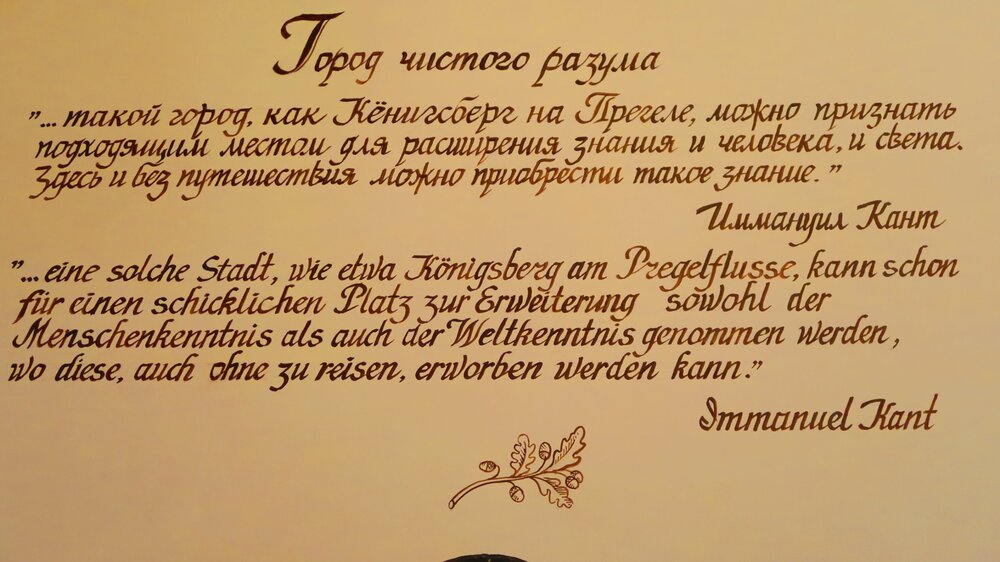 Город чистого разума
"... такой город, как Кёнигсберг на Прегеле, можно признать
подходящим местом для расширения знания и человека, и света.
Здесь и без путешествия можно приобрести такое знание."
Иммануил Кант
"... eine solche Stadt, wie etwa Königsberg am Pregelflusse, kann schon
für einen schicklichen Platz zur Erweiterung sowohl der
Menschenkenntnis als auch der Weltkenntnis genommen werden,
wo diese, auch ohne zu reisen, erworben werden kann."
Immanuel Kant